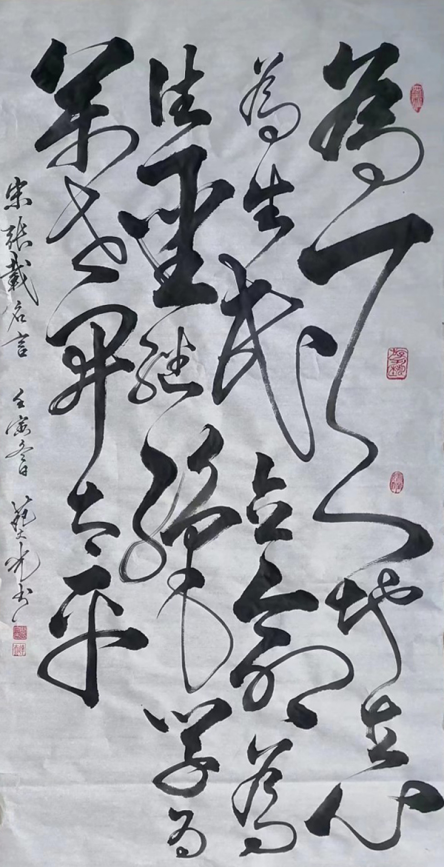 為天地立心
為生民立命為
往聖繼絕學為
萬世開太平
宋張載名言 壬寅